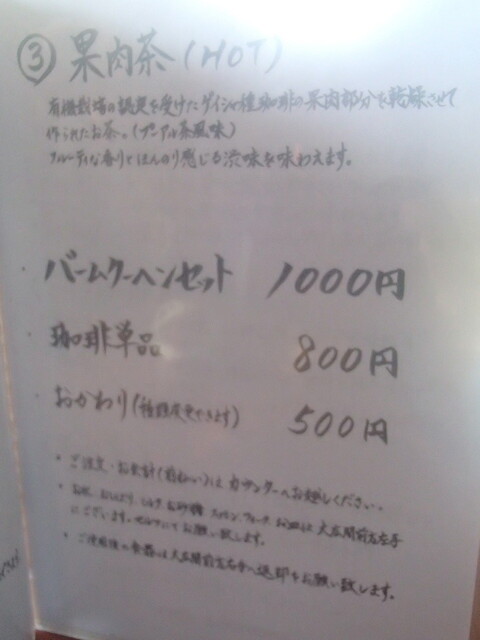 ③ 果肉茶(HOT)
有機栽培の認定を受けたゲイシャ種珈琲の果肉部分を乾燥させて
作られたお茶。(プーアル茶風味)
フルーティな香りとほんのり感じる渋味を味わえます。
・バームクーヘンセット 1000円
・珈琲単品 800円
・おかわり(種類変更できます) 500円
・ご注文・お会計(前払い)はカウンターへお越しください。
・お水、おしぼり、ミルク、お砂糖 スプーン、フォーク、お皿は、大広間前左左手
にございます。セルフにてお願い致します。
・ご使用後の食器は大広間前左右手へ返却をお願い致します。